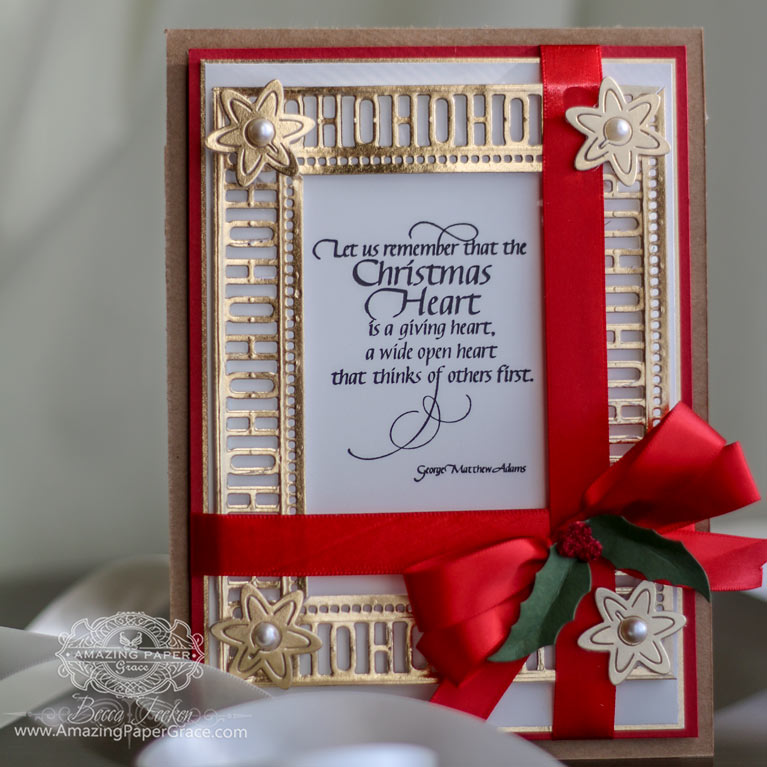 HOHOHO
Let us remember that the
Christmas
Heart
is a giving heart,
a wide open heart
that thinks of others first.
George Matthew Adams
AMAZING PAPER
Grace
Becca Feeken
www.AmazingPaperGrace.com